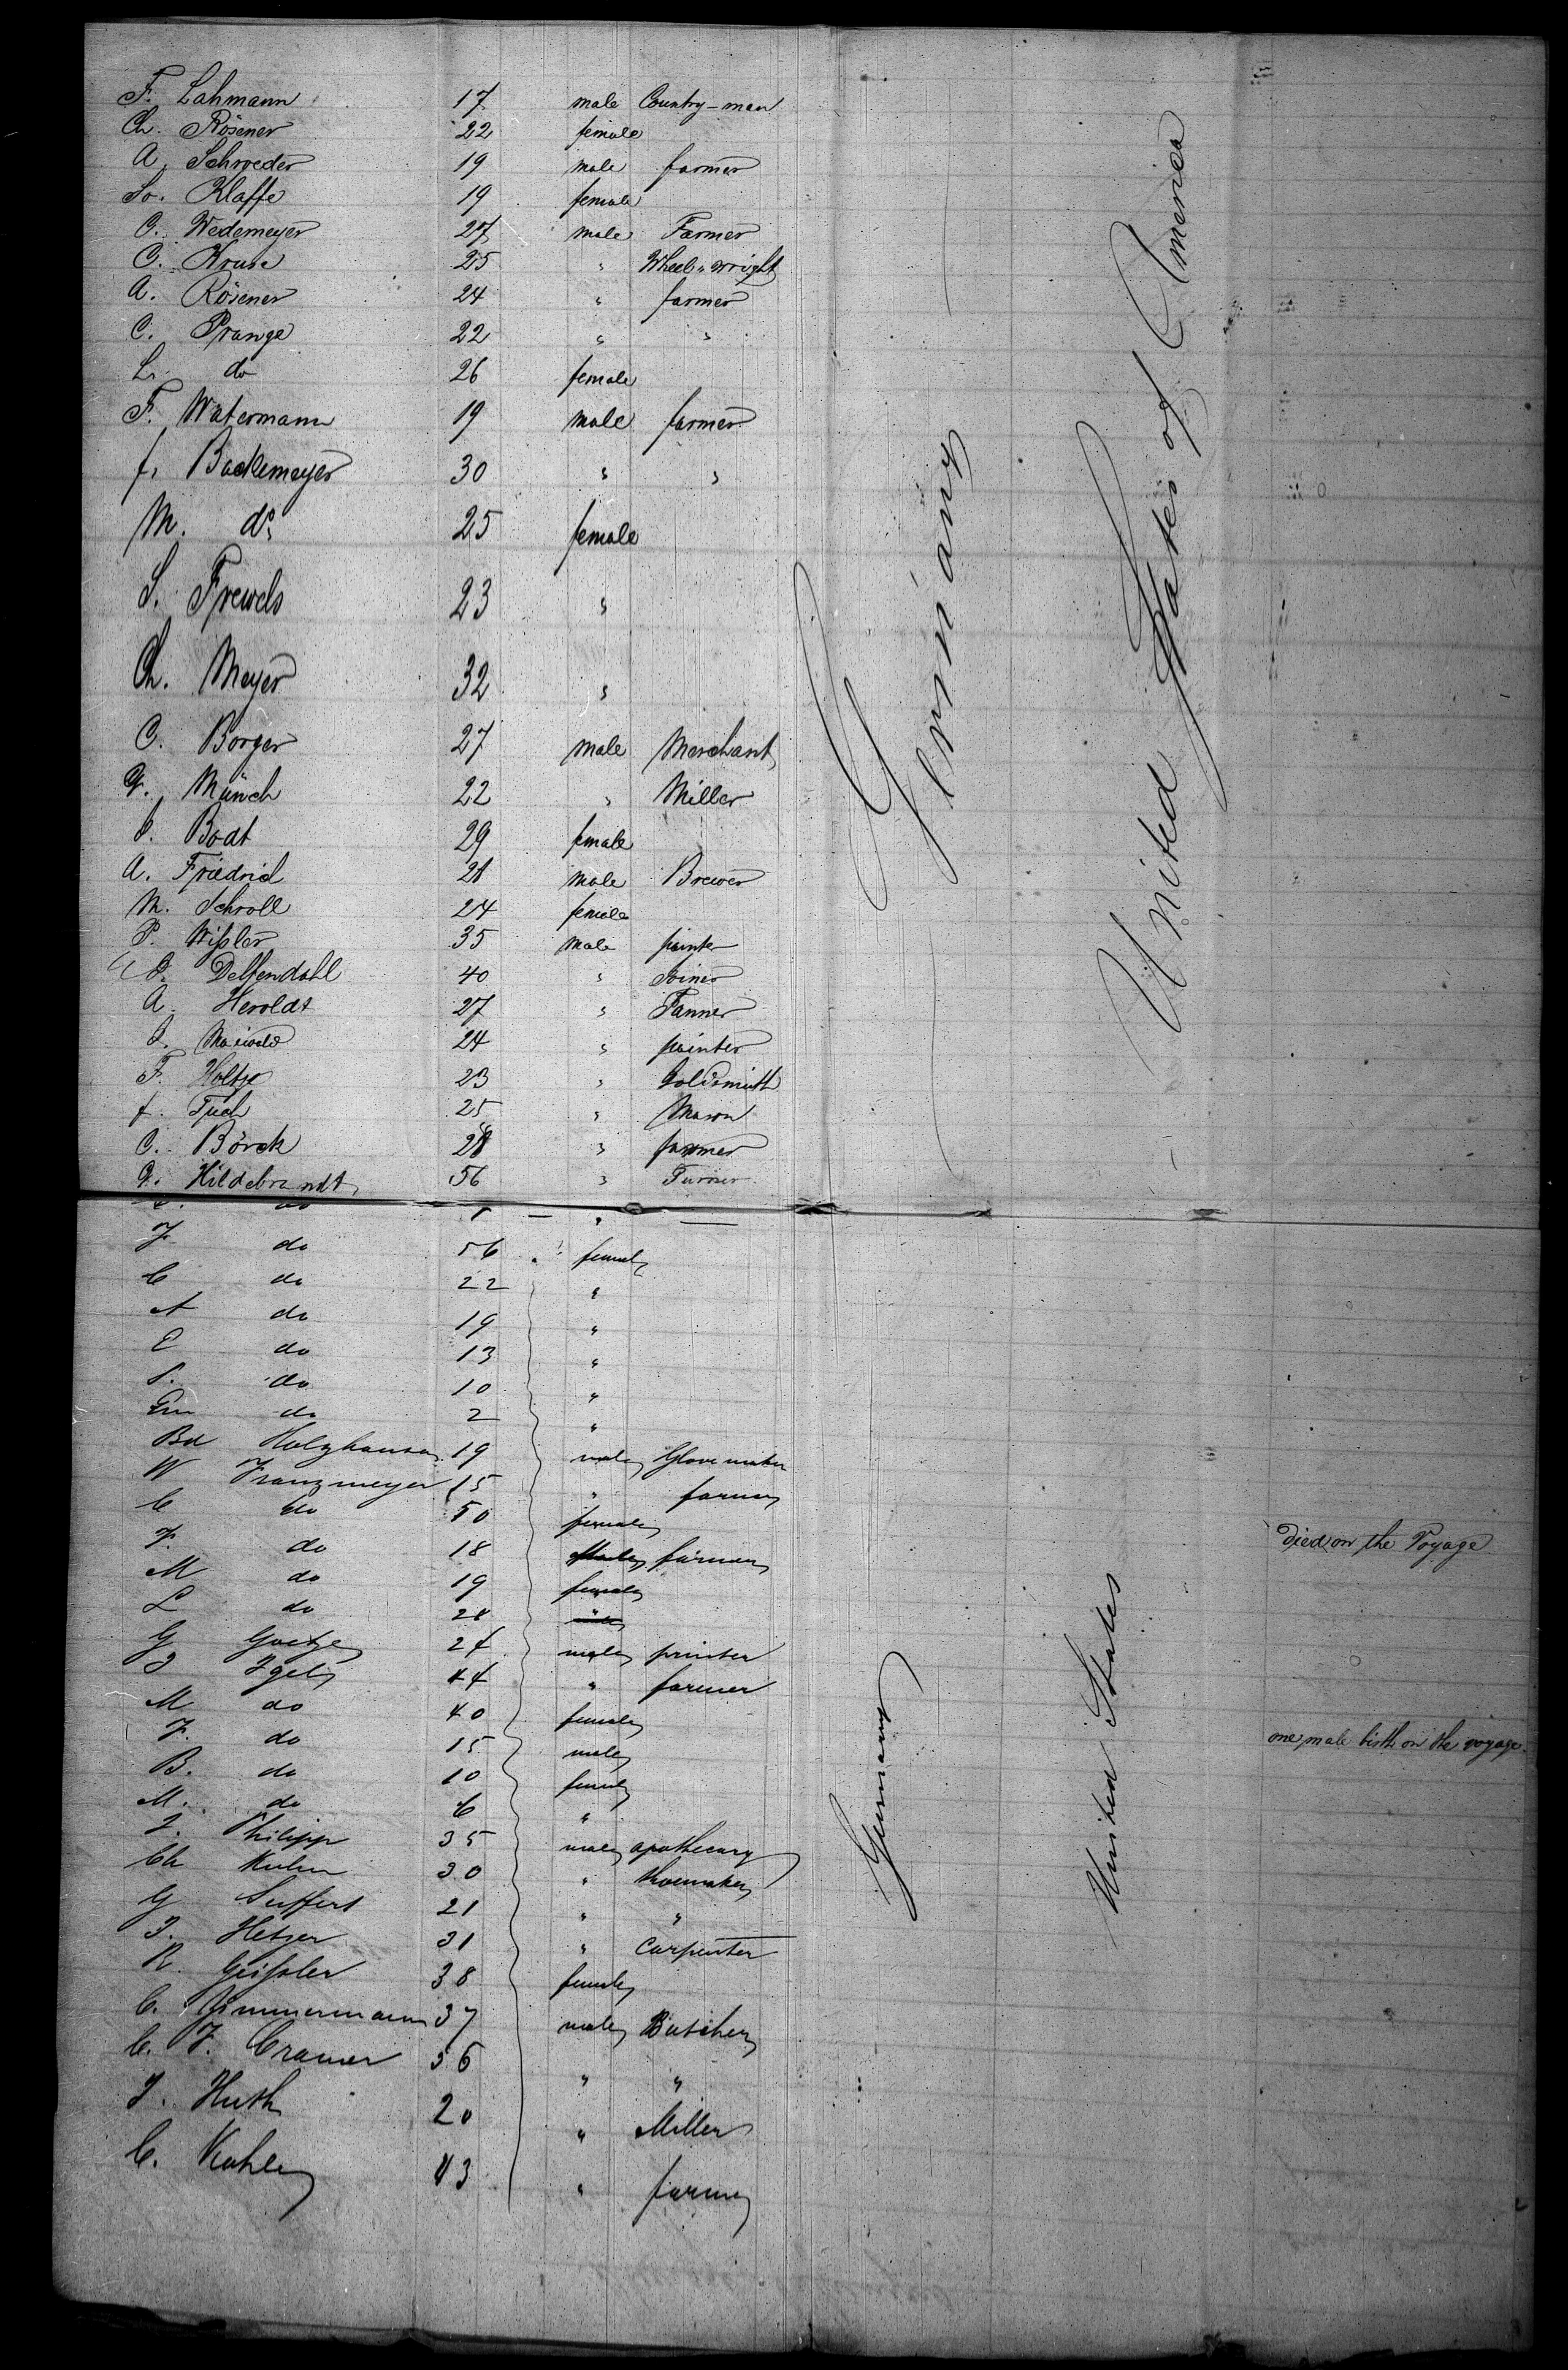 F. Lahmann 17 male Country-man
Ch. Rösener 22 female
A. Schroeder 19 male farmer
So. Klaffe 19 female
C. Wedemeyer 27 male Farmer
C. Kruse 25 " Wheel-wright
A. Rösener 24 " farmer
C. Prange 22 " "
L. do 26 female
F. Watermann 19 male farmer
f. Backemeyer 30 " "
M. do 25 female
S. Frewels 23 "
Ch. Meyer 32 "
C. Borger 27 male Merchant
G. Münch 22 " Miller
Bodt 29 female
A. Friedrid 21 male Brewer
M. Schroll 24 female
P. Wißler 35 male
Delfendahl 40 " Joiner
A. Heroldt 27 " Tanner
24 " painter
F. Holtze 23 " Goldsmith
f. Tuch 25 " Mason
C. Börck " farmer
G. Hildebrandt 56 " Turner
do "
F do 56 female
C do 22 "
A do 19 "
E do 13 "
S. do 10 "
do 2 "
Bd Holzhausen 19 male Glove maker
W Franzmeyer 15 " farmer
C do 50 female died on the Voyage
F. do 18 Male farmer
M do 19 female
L do "
G Goetze 24 male printer
J Igel 44 " farmer
M do 40 female
F. do 15 male one male birth on the voyage.
B. do 10 female
M. do 6 "
J. Philipp 35 male apothecary
Ch Kuhn 30 " Shoemaker
G Suffert 21 " "
J. Hetzer 31 " Carpenter
R. Geißler 38 female
C. Zimmermann 37 male Butcher
C. F. Cramer 36 " "
J. Huth 20 " Miller
C. Kohle 43 " farmer
Germany
United States of America
Germany
United States